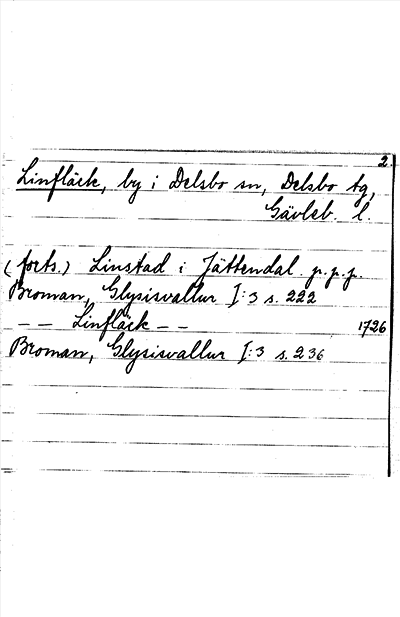 2.
Linfläck, by i Delsbo sn, Delsbo tg,
Gävleb. l.
(forts.) Linstad i Jättendal p.p.p.
Broman, Glysisvallur I:3 s. 222
— — Linfläck — — 1726
Broman, Glysisvallur I:3 s. 236